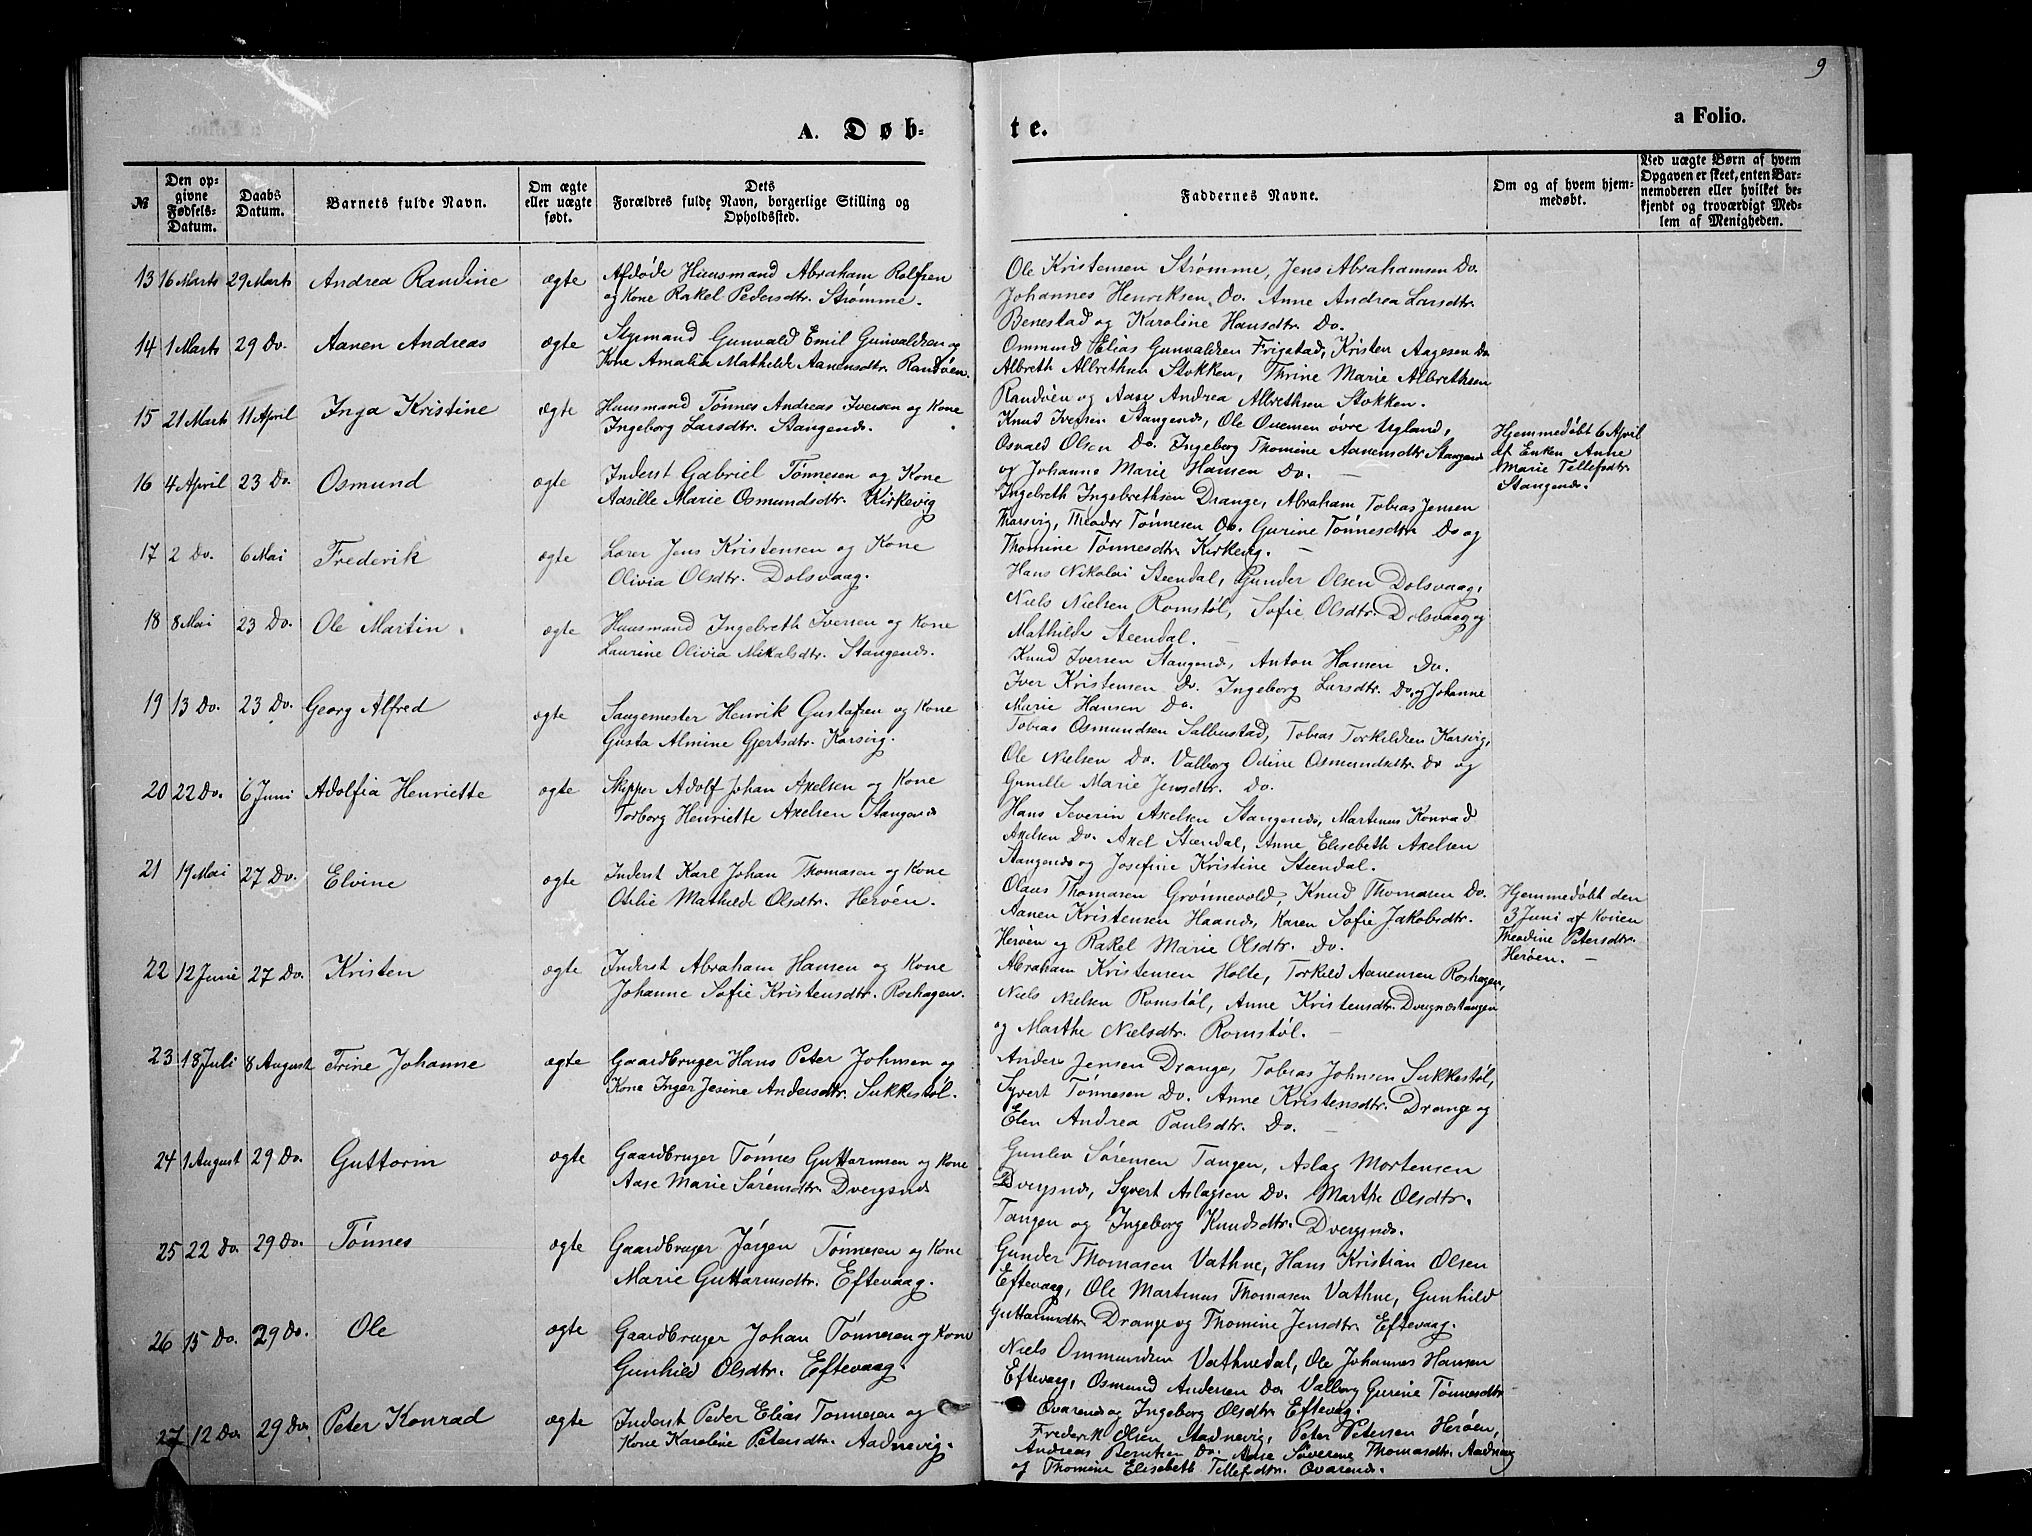 9
A. Døb-
te.
a Folio.
№
Den op-
givne
Fødsels-
Datum.
Daabs
Datum.
Barnets fulde Navn.
Om ægte
eller uægte
født.
Dets
Forældres fulde Navn, borgerlige Stilling og
Opholdssted.
Faddernes Navne.
Om og af hvem hjem-
medøbt.
Ved uægte Børn af hvem
Opgaven er skeet, enten Bar-
nemoderen eller hvilket be-
kjendt og troværdigt Med-
lem af Menigheden.
13 16 Marts 29 Marts Andrea Randine ægte Afdøde Huusmand Abraham Rolfsen
og Kone Rakel Pedersdtr. Strømme.
Ole Kristensen Strømme, Jens Abrahamsen Do.
Johannes Henriksen Do. Anne Andrea Larsdtr.
Benestad og Karoline Hansdtr. Do.
14 1 Marts 29 Do. Aanen Andreas ægte Gunvald Emil Gunvaldsen og
Kone Amalia Mathilde Aanensdtr. Randøen.
Ommund Elias Gunvaldsen Frigstad, Kristen Aagesen Do
Albreth Albrethsen Stokken, Thrine Marie Albrethsen
Randøen og Aase Andrea Albrethsen Stokken.
15 21 Marts 11 April Inga Kristine ægte Huusmand Tønnes Andreas Iversen og Kone
Ingeborg Larsdtr. Stangends.
Knud Iversen Stangends, Ole Ouensen øvre Ugland,
Osvald Olsen Do. Ingeborg Thomine Aanensdtr Stangends
og Johanne Marie Hansen Do.
Hjemmedøbt 6 April
af Enken Anne
Marie Tellefsdtr.
Stangends.
16 4 April 23 Do. Osmund ægte Inderst Gabriel Tønnesen og Kone
Aasille Marie Osmundsdtr. Kirkevig
Ingebreth Ingebrethsen Drange, Abraham Tobias Jensen
Theodor Tønnesen Do. Gurine Tønnesdtr Do og
Thomine Tønnesdtr. Kirkevig. —
17 2 Do. 6 Mai Frederik ægte Jens Kristensen og Kone
Olivia Olsdtr. Dolsvaag.
Hans Nikolai Steendal, Gunder Olsen Dolsvaag,
Niels Nielsen Romstøl, Sofie Olsdtr. Dolsvaag og
Mathilde Steendal. —
18 8 Mai 23 Do. Ole Martin ægte Huusmand Ingebreth Iversen og Kone
Laurine Olivia Nikalsdtr. Stangends.
Knud Iversen Stangends, Anton Hansen Do.
Iver Kristensen Do. Ingeborg Larsdtr. Do. og Johanne
Marie Hansen Do.
19 13 Do. 23 Do. Georg Alfred ægte Saugemester Henrik Gustafsen og Kone
Gusta Almine Gjertsdtr. Korsvig.
Tobias Osmundsen Salbustad, Tobias Torkildsen Korsvig,
Ole Nielsen Do. Valborg Odine Osmundsdtr. Do og
Gunille Marie Jensdtr. Do.
20 22 Do. 6 Juni Adolfia Henriette ægte Skipper Adolf Johan Axelsen og Kone
Torborg Henriette Axelsen Stangends
Hans Severin Axelsen Stangends, Martinus Konrad
Axelsen Do. Axel Steendal, Anne Elisebeth Axelsen
Stangends og Josefine Kristine Steendal.
21 19 Mai 27 Do. Elvine ægte Inderst Karl Johan Thomasen og Kone
Otilie Mathilde Olsdtr. Herøen.
Olaus Thomasen Grønnevold, Knud Thomasen Do.
Aanen Kristensen Haands, Karen Sofie Jakobsdtr.
Herøen og Rakel Marie Olsdtr. Do.
Hjemmedøbt den
3 Juni af Konen
Theodine Petersdtr.
Herøen. —
22 12 Juni 27 Do. Kristen ægte Inderst Abraham Hansen og Kone
Johanne Sofie Kristensdtr. Roshagen.
Abraham Kristensen Holte, Torkild Aanensen Roshagen,
Niels Nielsen Romstøl, Anne Kristensdtr.
og Marthe Nielsdtr. Romstøl. —
23 18 Juli 8 August Trine Johanne ægte Gaardbruger Hans Peter Johnsen og
Kone Inger Jesine Andersdtr. Sukkestøl.
Anders Jensen Drange, Tobias Johnsen Sukkestøl,
Syvert Tønnesen Do. Anne Kristensdtr. Drange og
Elen Andrea Paulsdtr. Do. —
24 1 August 29 Do. Guttorm ægte Gaardbruger Tønnes Guttormsen og Kone
Aase Marie Sørensdtr. Dvergsnds
Gunlev Sørensen Tangen, Aslag Mortensen
Dvergsnds, Syvert Aslagsen Do. Marthe Olsdtr.
Tangen og Ingeborg Knudsdtr. Dvergsnds.
25 22 Do. 29 Do. Tønnes ægte Gaardbruger Jørgen Tønnesen og Kone
Marie Guttormsdtr. Eftevaag.
Gunder Thomasen Vathne, Hans Kristian Olsen
Eftevaag, Ole Martinus Thomasen Vathne, Gunhild
Guttormsdtr. Drange og Thomine Jensdtr. Eftevaag.
26 15 Do. 29 Do. Ole ægte Gaardbruger Johan Tønnesen og Kone
Gunhild Olsdtr. Eftevaag.
Niels Ommundsen Vathnedal, Ole Johannes Hansen
Eftevaag, Osmund Andersen Do. Valborg Gurine Tønnesdtr
Qvarends og Ingeborg Olsdtr. Eftevag.
27 12 Do. 29 Do. Peter Konrad ægte Inderst Peder Elias Tønnesen og
Kone Karoline Petersdtr. Aadnevig.
Frederik Olsen Aadnevig, Peter Petersen Herøen,
Andreas Berntsen Do. Aase Severine Thomasdtr. Aadnevig
og Thomine Elisebeth Tellefsdtr. Qvarends.